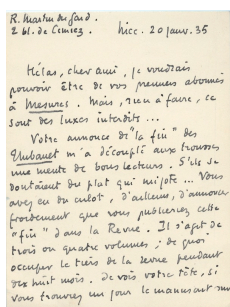 R. Martin du Gard.
2 bd. de Cimiez. Nice. 20 janv. 35
Hélas, cher ami, je voudrais
pouvoir être de vos premiers abonnés
à Mesures. Mais, rien à faire, ce
sont des luxes interdits ...
Votre annonce de "la fin" des
Thibault m'a découplé aux trousses
une meute de bons lecteurs. S'ils se
doutaient du plat qui mijote ... Vous
avez eu du culot, d'ailleurs, d'annoncer
froidement que vous publieriez cette
"fin" dans la Revue. Il s'agit de
trois ou quatre volumes ; de quoi
occuper le tiers de la revue pendant
dix huit mois. Je vois votre tête, si
vous trouvez un jour le manuscrit sur